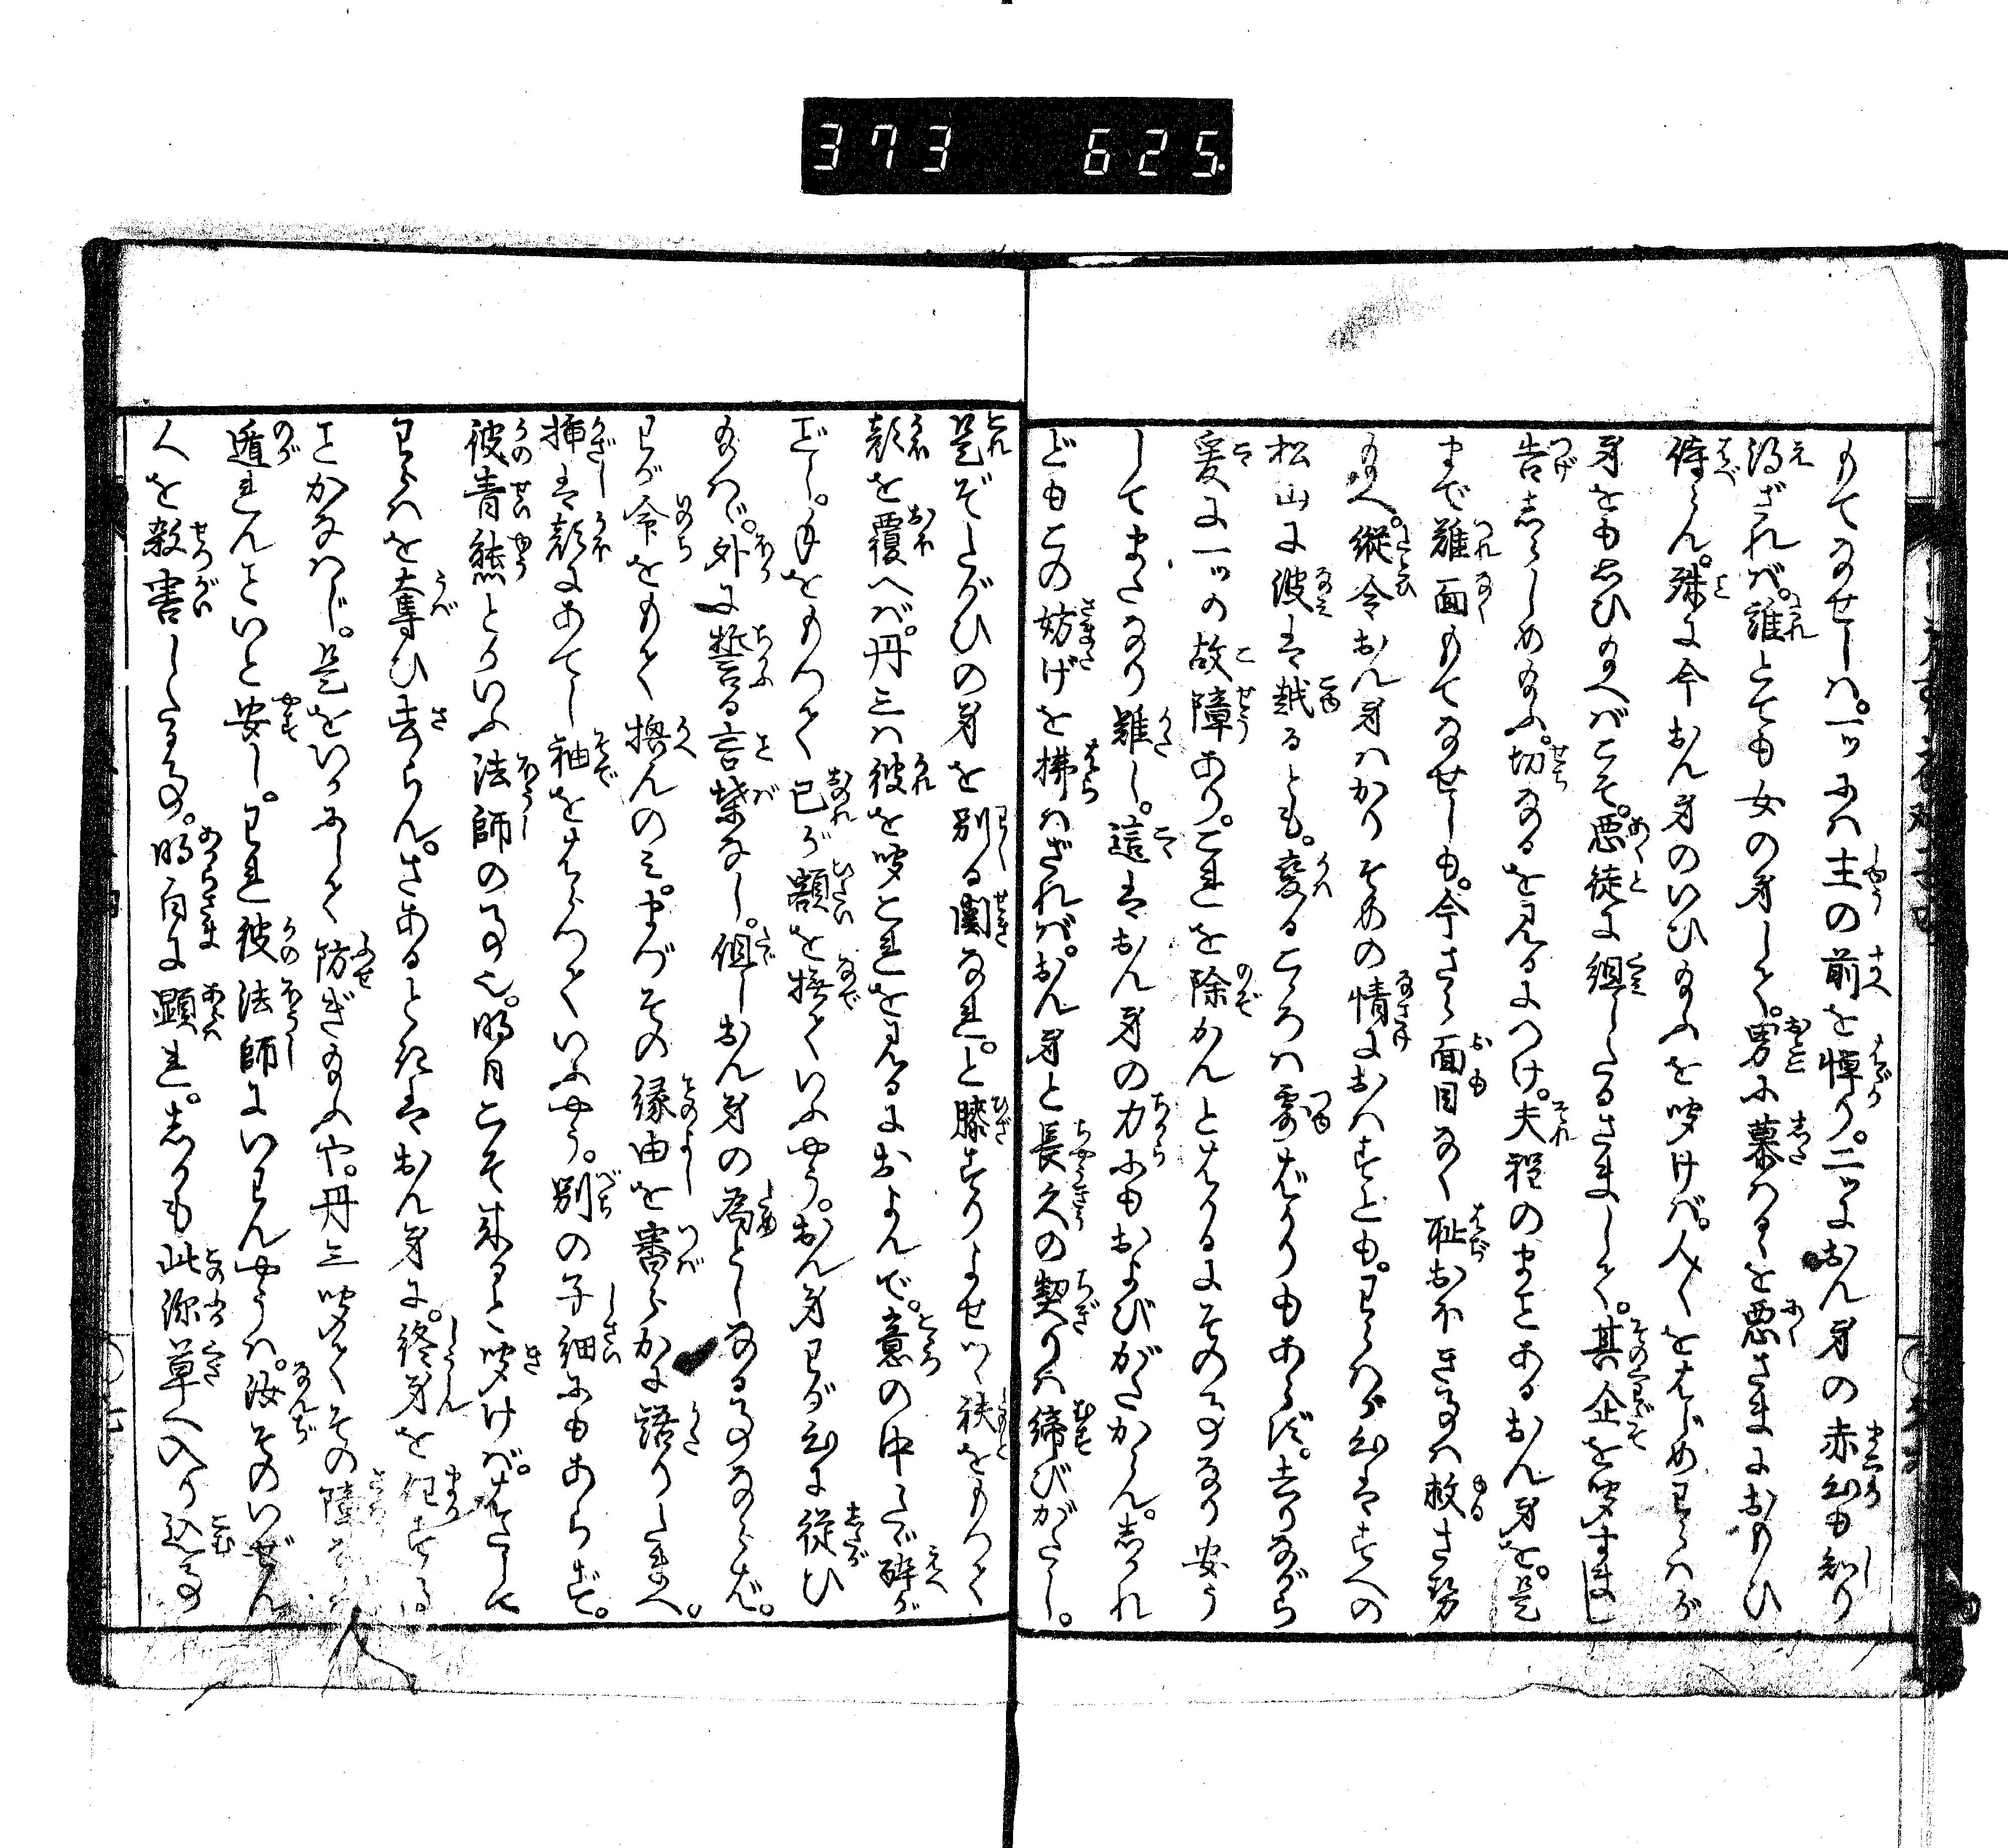 373 625.
もてなせしハ。一ッにハ主の前を憚り。二ッにおん身の赤心も知り
得ざれバ。誰とても女の身して。男に慕ハるゝを悪さまにおもひ
侍らん。殊に今おん身のいひ給ふを聞けバ。人々をはじめわらハが
身をも思ひ給へバこそ。悪徒に組したるさまして。其企を聞すまし
告志らしめ給ふ。切なるを見るにつけ。夫程のまことあるおん身を。是
まで難面もてなせしも。今さら面目なく恥おほき事ハ赦させ
給へ。縦令おん身ハかりそめの情におハすとも。わらハが心ハすへの
松山に波ハ越るとも。変るこゝろハ露ばかりもあらず。去りながら
爰に一ッの故障あり。これを除かんとはかるにその事なり安う
してまたなり難し。這ハおん身の力にもおよびがたからん。志かれ
どもこの妨げを拂ハざれバ。おん身と長久の契りハ締びがたし。
是ぞたがひの身を別る関なれ。と膝すりよせつゝ袂をもつて
顔を覆へバ。丹三ハ彼を聞これを見るにおよんで。意の中まで酔が
ごし。手をもつて已が額を撫ていふやう。おん身わが心に従ひ
給はゞ。外に誓る言葉なし。但しおん身の為としなる事ならば。
わが命をもて換んのミ。まづその縁由を審らかに語りたまへ。
挿ハ顔にあてし袖をはらつていふやう。別の子細にもあらず。
彼青熊とかいふ法師の事也。明日こそ来ると聞けバ。はたして
わらハを奪ひ去らん。さあるときハおん身に。終身を任する
ことかなハじ。是をいかにして防ぎ給ふや。丹三聞てその障を
遁れんこといと安し。われ彼法師にいわんやうハ。汝そのいぜん
人を殺害したる事。明白に顕れ。志かも此深草へ入り込事